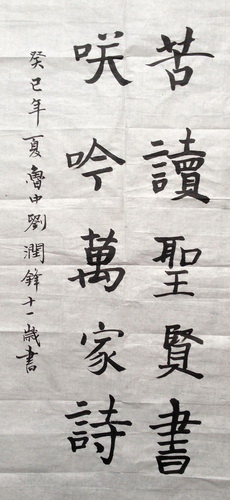 苦讀聖賢書
咲吟萬家詩
癸巳年夏魯中劉潤鋒十一歲書